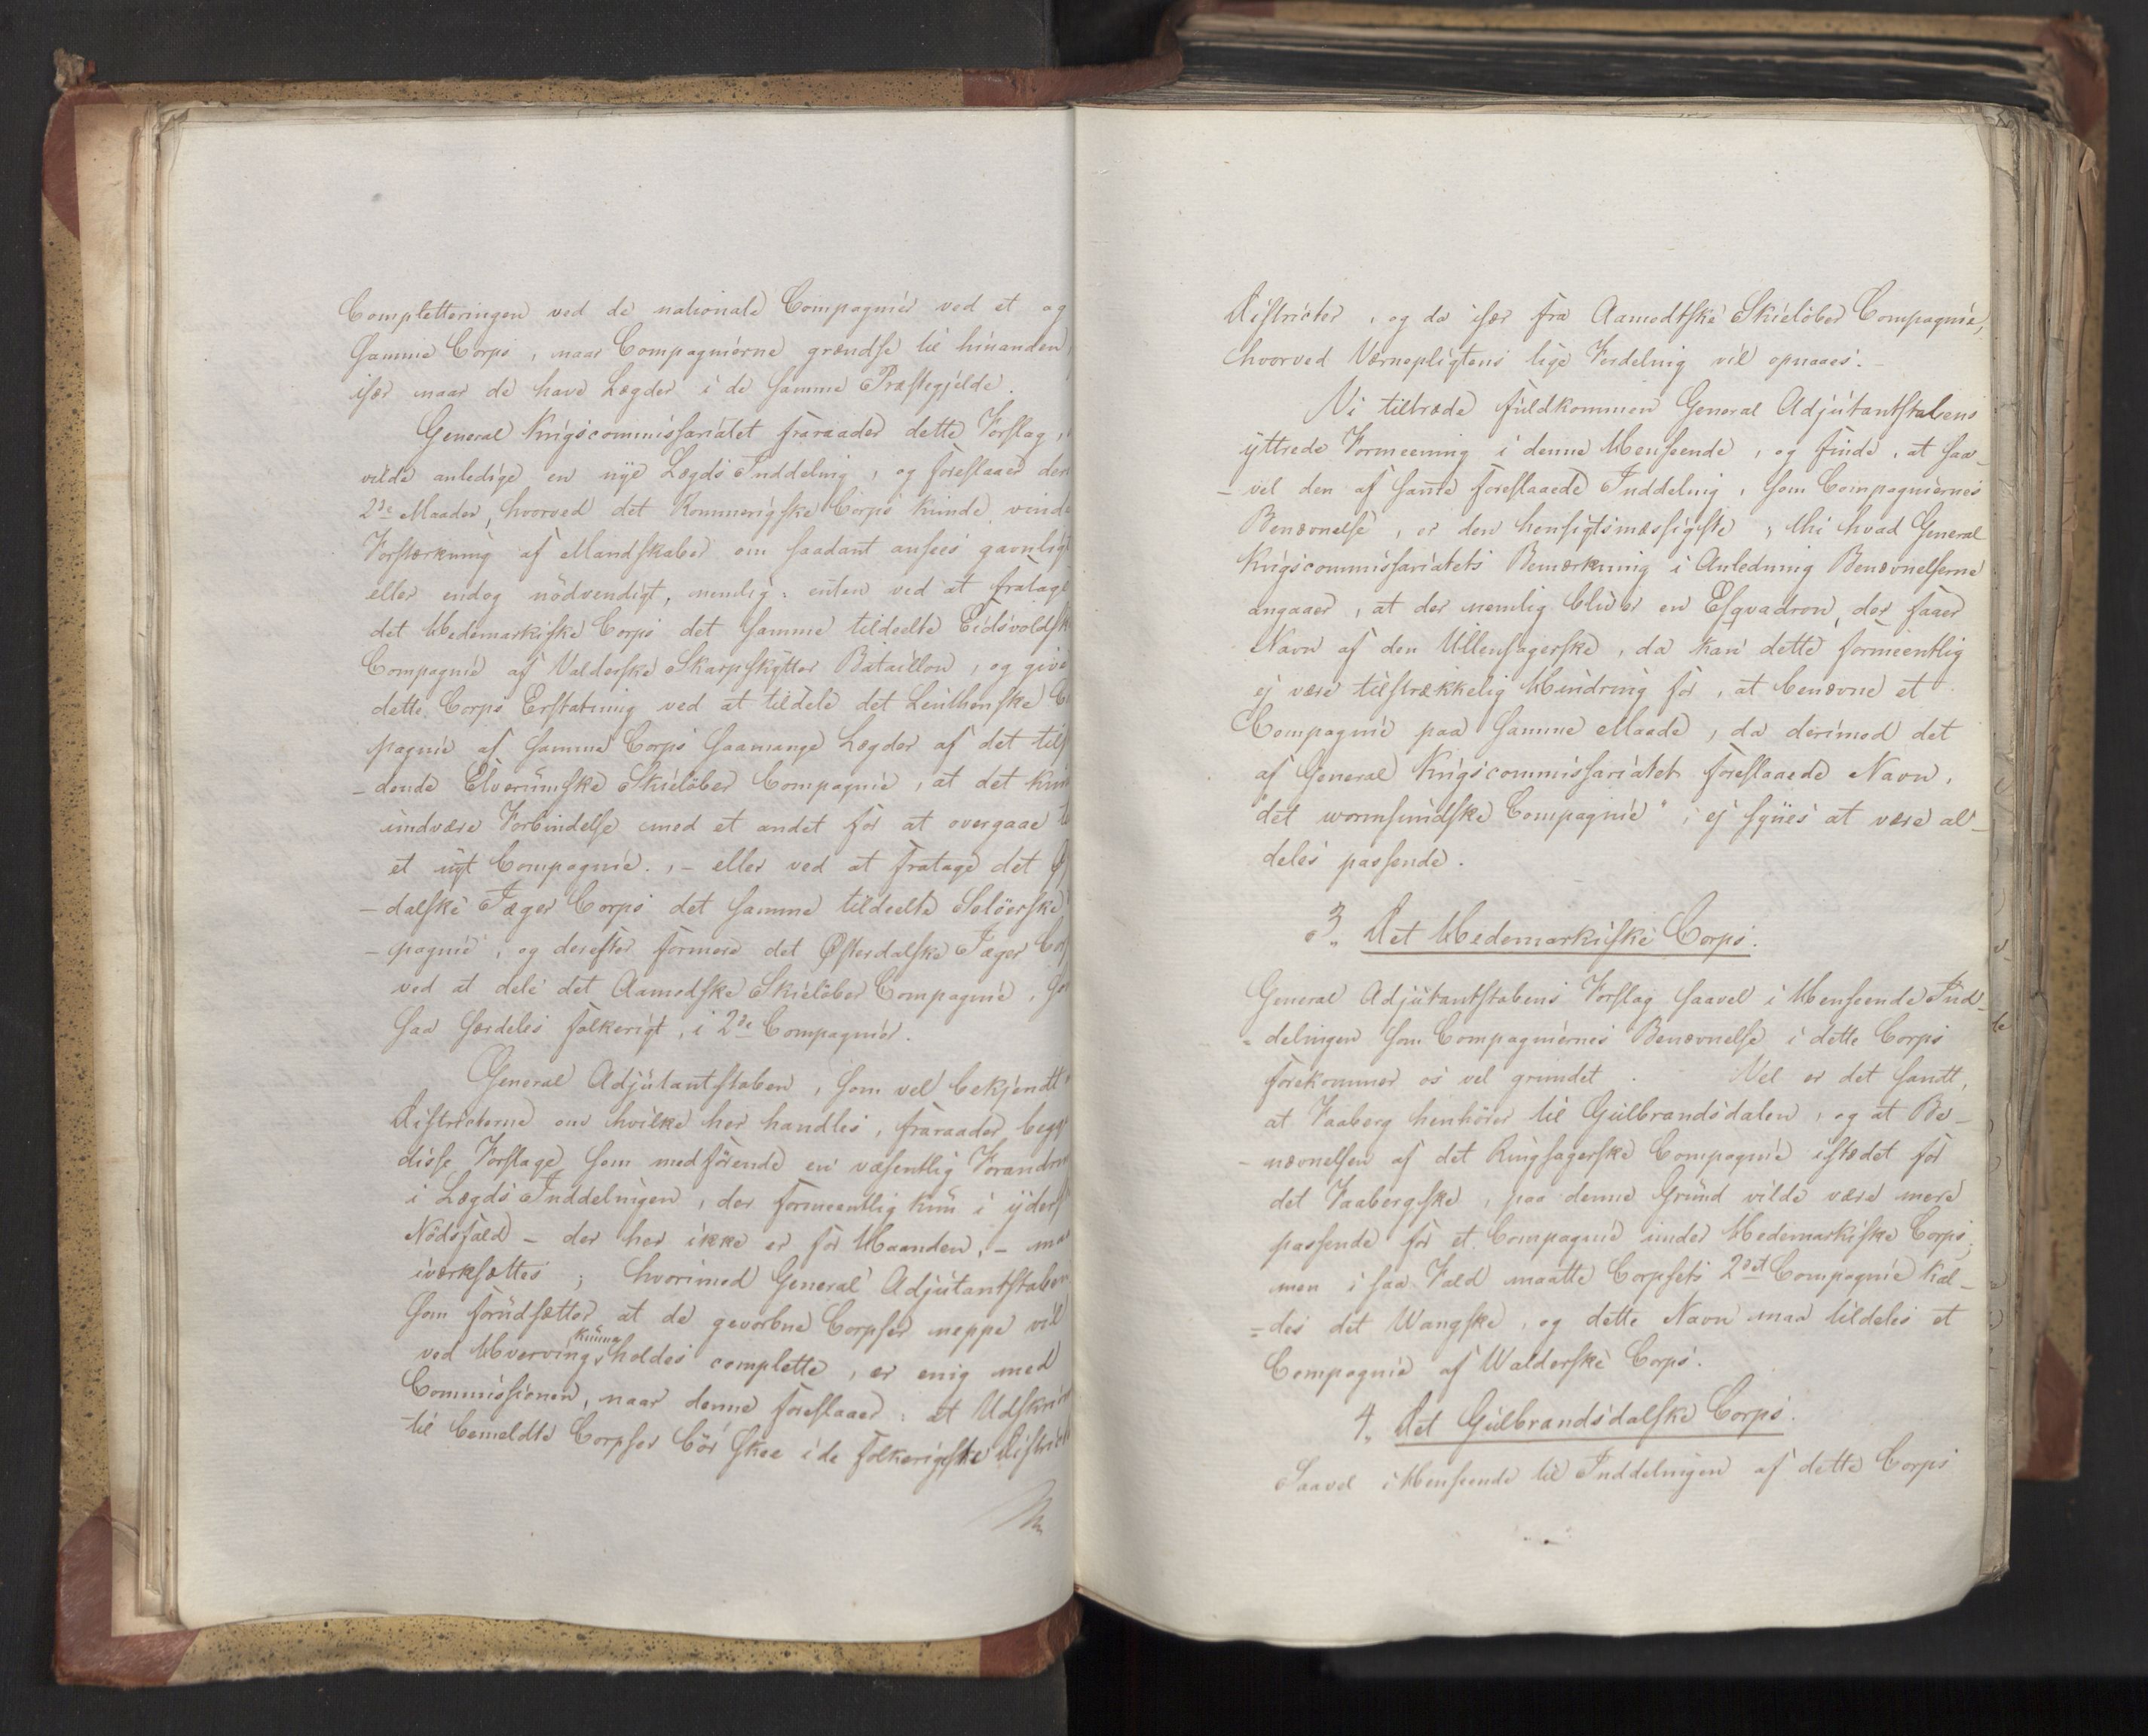 Completteringen ved de nationale Compagnier ved et og
samme Corps, naar Compagnierne grændse til hinanden,
især naar de have Lægder i de samme Præstegjelde.
General Krigscommissariatet fraraader dette Forslag,
vilde anledige en nye Lægds Inddeling, og foreslaaer den
2de Maader, hvorved det Rommerigske Corps kunde vinde
Forstærkning af Mandskaber om saadant ansees gavnligt
eller endog nödvendigt, nemlig: enten ved at fratage
det Hedemarkiske Corps det samme tildeelte Eidsvoldsk
Compagnie af Valderske Skarpskytter Bataillon, og give
dette Corps Erstatning ved at tildele det Leuthenske
pagnie af samme Corps saamange Lægder af det
-dende Elverumske Skielöber Compagnie, at det kun
undvære Forbindelse med et andet for at overgaae
et nyt Compagnie., - eller ved at fratage det
-dalske Jæger Corps det samme tildeelte Solöerske
-pagnie, og derefter formere det Østerdalske Jæger
ved at dele det Aamodske Skielöber Compagnie,
saa særdeles folkerigt, i 2de Compagnier.
General Adjutantstaben, som vel bekjendt
Districterne om hvilke her handles, fraraader begge
disse Forslage, som medförende en væsentlig Forandring
i Lægds Inddelingen, der formeentlig kun i yderst
Nödsfald - der her ikke er for Haanden, - maa
iværksættes; hvorimod General Adjutantstaben
som forudsætter at de gevorbne Corpser neppe vil
ved Hverving kunne holdes complette, er enig med
Commissionen, naar denne foreslaaer: at Udskriv
til bemeldte Corpser bör skee i de folkerigste District
Districter, og da især fra Aamodtske Skielöber Compagnie,
hvorved Værnepligtens lige Fordeling vil opnaaes.
Vi tiltræde fuldkommen General Adjutantstabens
yttrede Formeening i denne Henseende, og finde, at saa-
-vel den af samme foreslaaede Inddeling, som Compagniernes
Benævnelse, er den hensigtsmæssigste; thi hvad General
Krigscommissariatets Bemærkning i Anledning Benævnelserne
angaaer, at der nemlig bliver en Esqvadron, der faaer
Navn af den Ullensagerske, da kan dette formeentlig
ej være tilstrækkelig Hindring for, at benævne et
Compagnie paa samme Maade, da derimod det
af General Krigscommissariatet foreslaaede Navn,
"det wormsundske Compagnie", ej synes at være al-
deles passende.
3., Det Hedemarkiske Corps.
General Adjutantstabens Forslag saavel i Henseende Ind-
=delingen som Compagniernes Benævnelse i dette Corps
forekommer os vel grundet. Vel er det sandt,
at Faaberg henhörer til Gulbrandsdalen, og at Be-
-nævnelsen af det Ringsagerske Compagnie istædet for
det Faabergske, paa denne Grund vilde være mere
passende for et Compagnie under Hedemarkiske Corps;
men i saa Fald maatte Corpsets 2det Compagnie kal-
=des det Wangske, og dette Navn maa tildeles et
Compagnie af Walderske Corps.
4., Det Gulbrandsdalske Corps.
Saavel i Henseende til Inddelingen af dette Corps